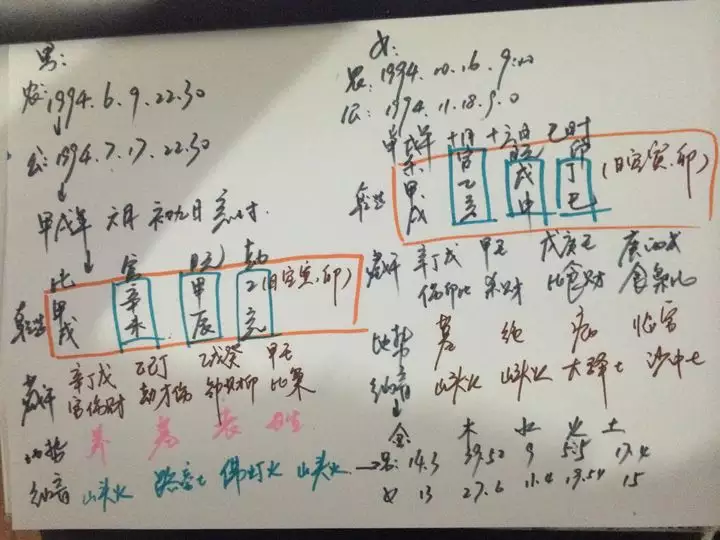 男:
农:1994.6.9.22.30
公:1994.7.17.22.30
甲戌年 六月 初九日 亥时
比 官 日元 劫
乾造 甲戌 辛未 甲辰 乙亥 (日空寅、卯)
藏干 辛丁戊 乙己丁 乙戊癸 甲壬
官伤财 劫才伤 劫财印 比枭
地势 养 墓 衰 长生
纳音 山头火 路旁土 佛灯火 山头火
女:
农:1994.10.16.9:00
公:1994.11.18.9.0
甲戌年 十月 十六日 巳时
杀 官 日元 印
甲戌 乙亥 戊申 丁巳 (日空寅、卯)
藏干 辛丁戊 甲壬 戊庚壬 庚丙戊
伤印比 杀财 比食财 食枭比
地势 墓 绝 病 临官
纳音 山头火 山头火 大驿土 沙中土
金 木 水 火 土
男:14.3 39.52 9 5.5 17.4
女 13 27.6 11.4 19.54 15